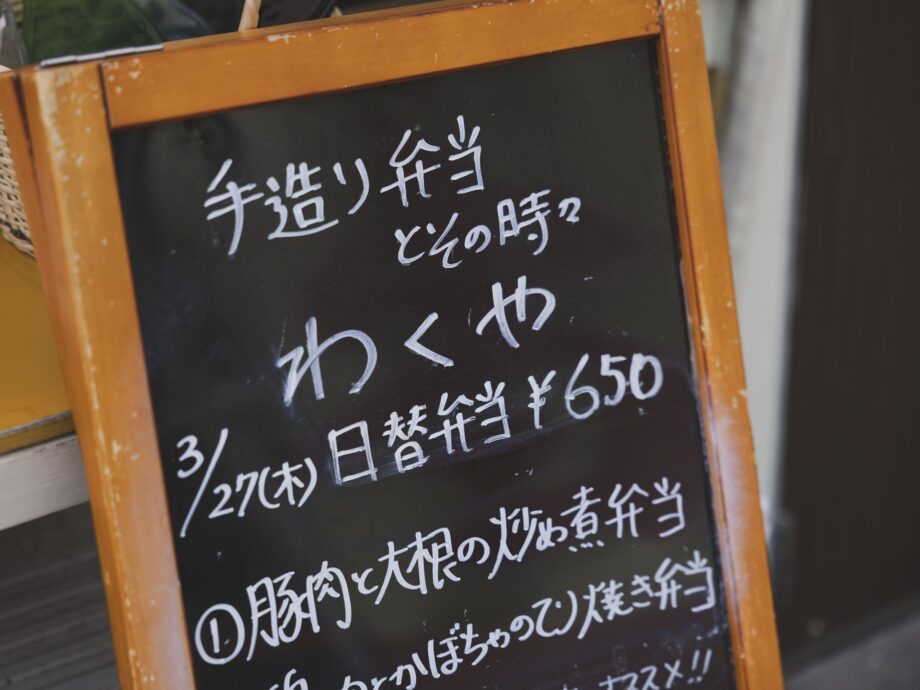 手造り弁当
とその時々
わくや
3/27(木) 日替弁当 ¥650
①豚肉と大根の炒め煮弁当
とかぼちゃのてり焼き弁当
オススメ!!